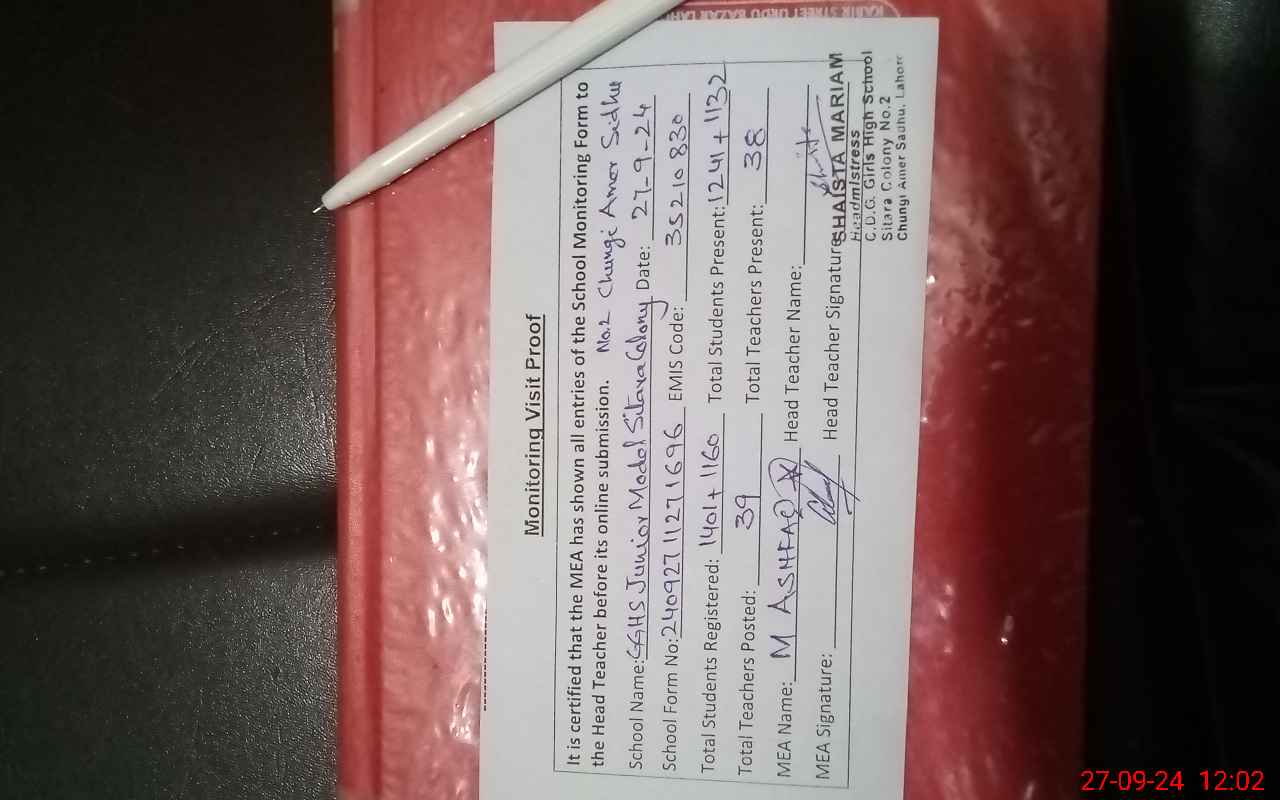 KABIR STREET URDU BAZAR LAH
Monitoring Visit Proof
It is certified that the MEA has shown all entries of the School Monitoring Form to
the Head Teacher before its online submission. No.2 Chungi Amer Sidhu
School Name: GGHS Junior Model Sitara Colony Date: 27-9-24
School Form No: 24092711271696 EMIS Code: 35210830
Total Students Registered: 1401+1160 Total Students Present: 1241+1132
Total Teachers Posted: 39 Total Teachers Present: 38
MEA Name: M ASHFAQ Head Teacher Name:
MEA Signature: Head Teacher Signature
SHAISTA MARIAM
Headmistress
C.D.G. Girls High School
Sitara Colony No.2
Chungi Amer Sadhu, Lahore
27-09-24 12:02